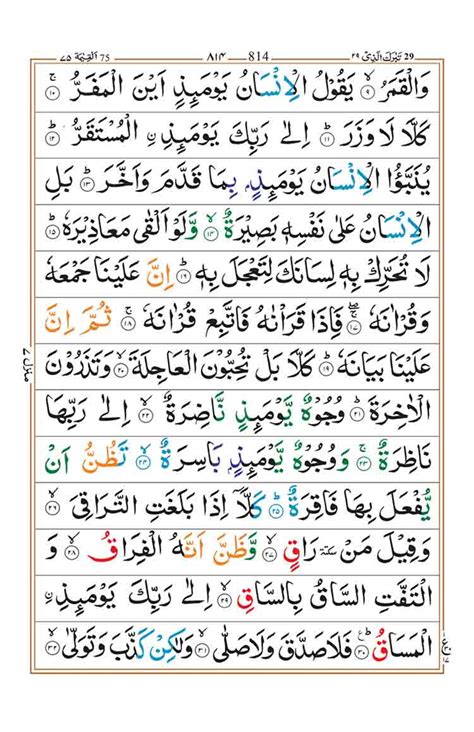 تَبٰرَكَ الَّذِىْ ٢٩ 29 814 ٨١٤ اَلْقِيٰمَة ٧٥ 75
وَالْقَمَرُ ۙ‏﴿۹﴾ يَقُوْلُ الْاِنْسَانُ يَوْمَئِذٍ اَيْنَ الْمَفَرُّ‌ ۚ‏﴿۱۰﴾
كَلَّا لَا وَزَرَ ؕ‏﴿۱۱﴾ اِلٰى رَبِّكَ يَوْمَئِذِ ۨالْمُسْتَقَرُّ ؕ‏﴿۱۲﴾
يُنَبَّؤُا الْاِنْسَانُ يَوْمَئِذٍۢ بِمَا قَدَّمَ وَاَخَّرَؕ‏﴿۱۳﴾ بَلِ
الْاِنْسَانُ عَلٰى نَفْسِهٖ بَصِيْرَةٌ ۙ‏﴿۱۴﴾ وَّلَوْ اَلْقٰى مَعَاذِيْرَهٗؕ‏﴿۱۵﴾
لَا تُحَرِّكْ بِهٖ لِسَانَكَ لِتَعْجَلَ بِهٖؕ‏﴿۱۶﴾ اِنَّ عَلَيْنَا جَمْعَهٗ
وَقُرْاٰنَهٗۚ ۖ‏﴿۱۷﴾ فَاِذَا قَرَاْنٰهُ فَاتَّبِعْ قُرْاٰنَهٗ‌ۚ‏﴿۱۸﴾ ثُمَّ اِنَّ
عَلَيْنَا بَيَانَهٗؕ‏﴿۱۹﴾ كَلَّا بَلْ تُحِبُّوْنَ الْعَاجِلَةَ ۙ‏﴿۲۰﴾ وَتَذَرُوْنَ
الْاٰخِرَةَ ؕ‏﴿۲۱﴾ وُجُوْهٌ يَّوْمَئِذٍ نَّاضِرَةٌ ۙ‏﴿۲۲﴾ اِلٰى رَبِّهَا
نَاظِرَةٌ‌ ۚ‏﴿۲۳﴾ وَوُجُوْهٌ يَّوْمَئِذٍۢ بَاسِرَةٌ ۙ‏﴿۲۴﴾ تَظُنُّ اَنْ
يُّفْعَلَ بِهَا فَاقِرَةٌ ؕ‏﴿۲۵﴾ كَلَّاۤ اِذَا بَلَغَتِ التَّرَاقِىَۙ‏﴿۲۶﴾
وَقِيْلَ مَنْ ۜ رَاقٍۙ‏﴿۲۷﴾ وَّظَنَّ اَنَّهُ الْفِرَاقُۙ‏﴿۲۸﴾ وَ
الْتَفَّتِ السَّاقُ بِالسَّاقِۙ‏﴿۲۹﴾ اِلٰى رَبِّكَ يَوْمَئِذِ ۨ
الْمَسَاقُؕ‏﴿۳۰﴾ فَلَا صَدَّقَ وَلَا صَلّٰىۙ‏﴿۳۱﴾ وَلٰكِنْ كَذَّبَ وَتَوَلّٰىۙ‏﴿۳۲﴾
منزل ٧